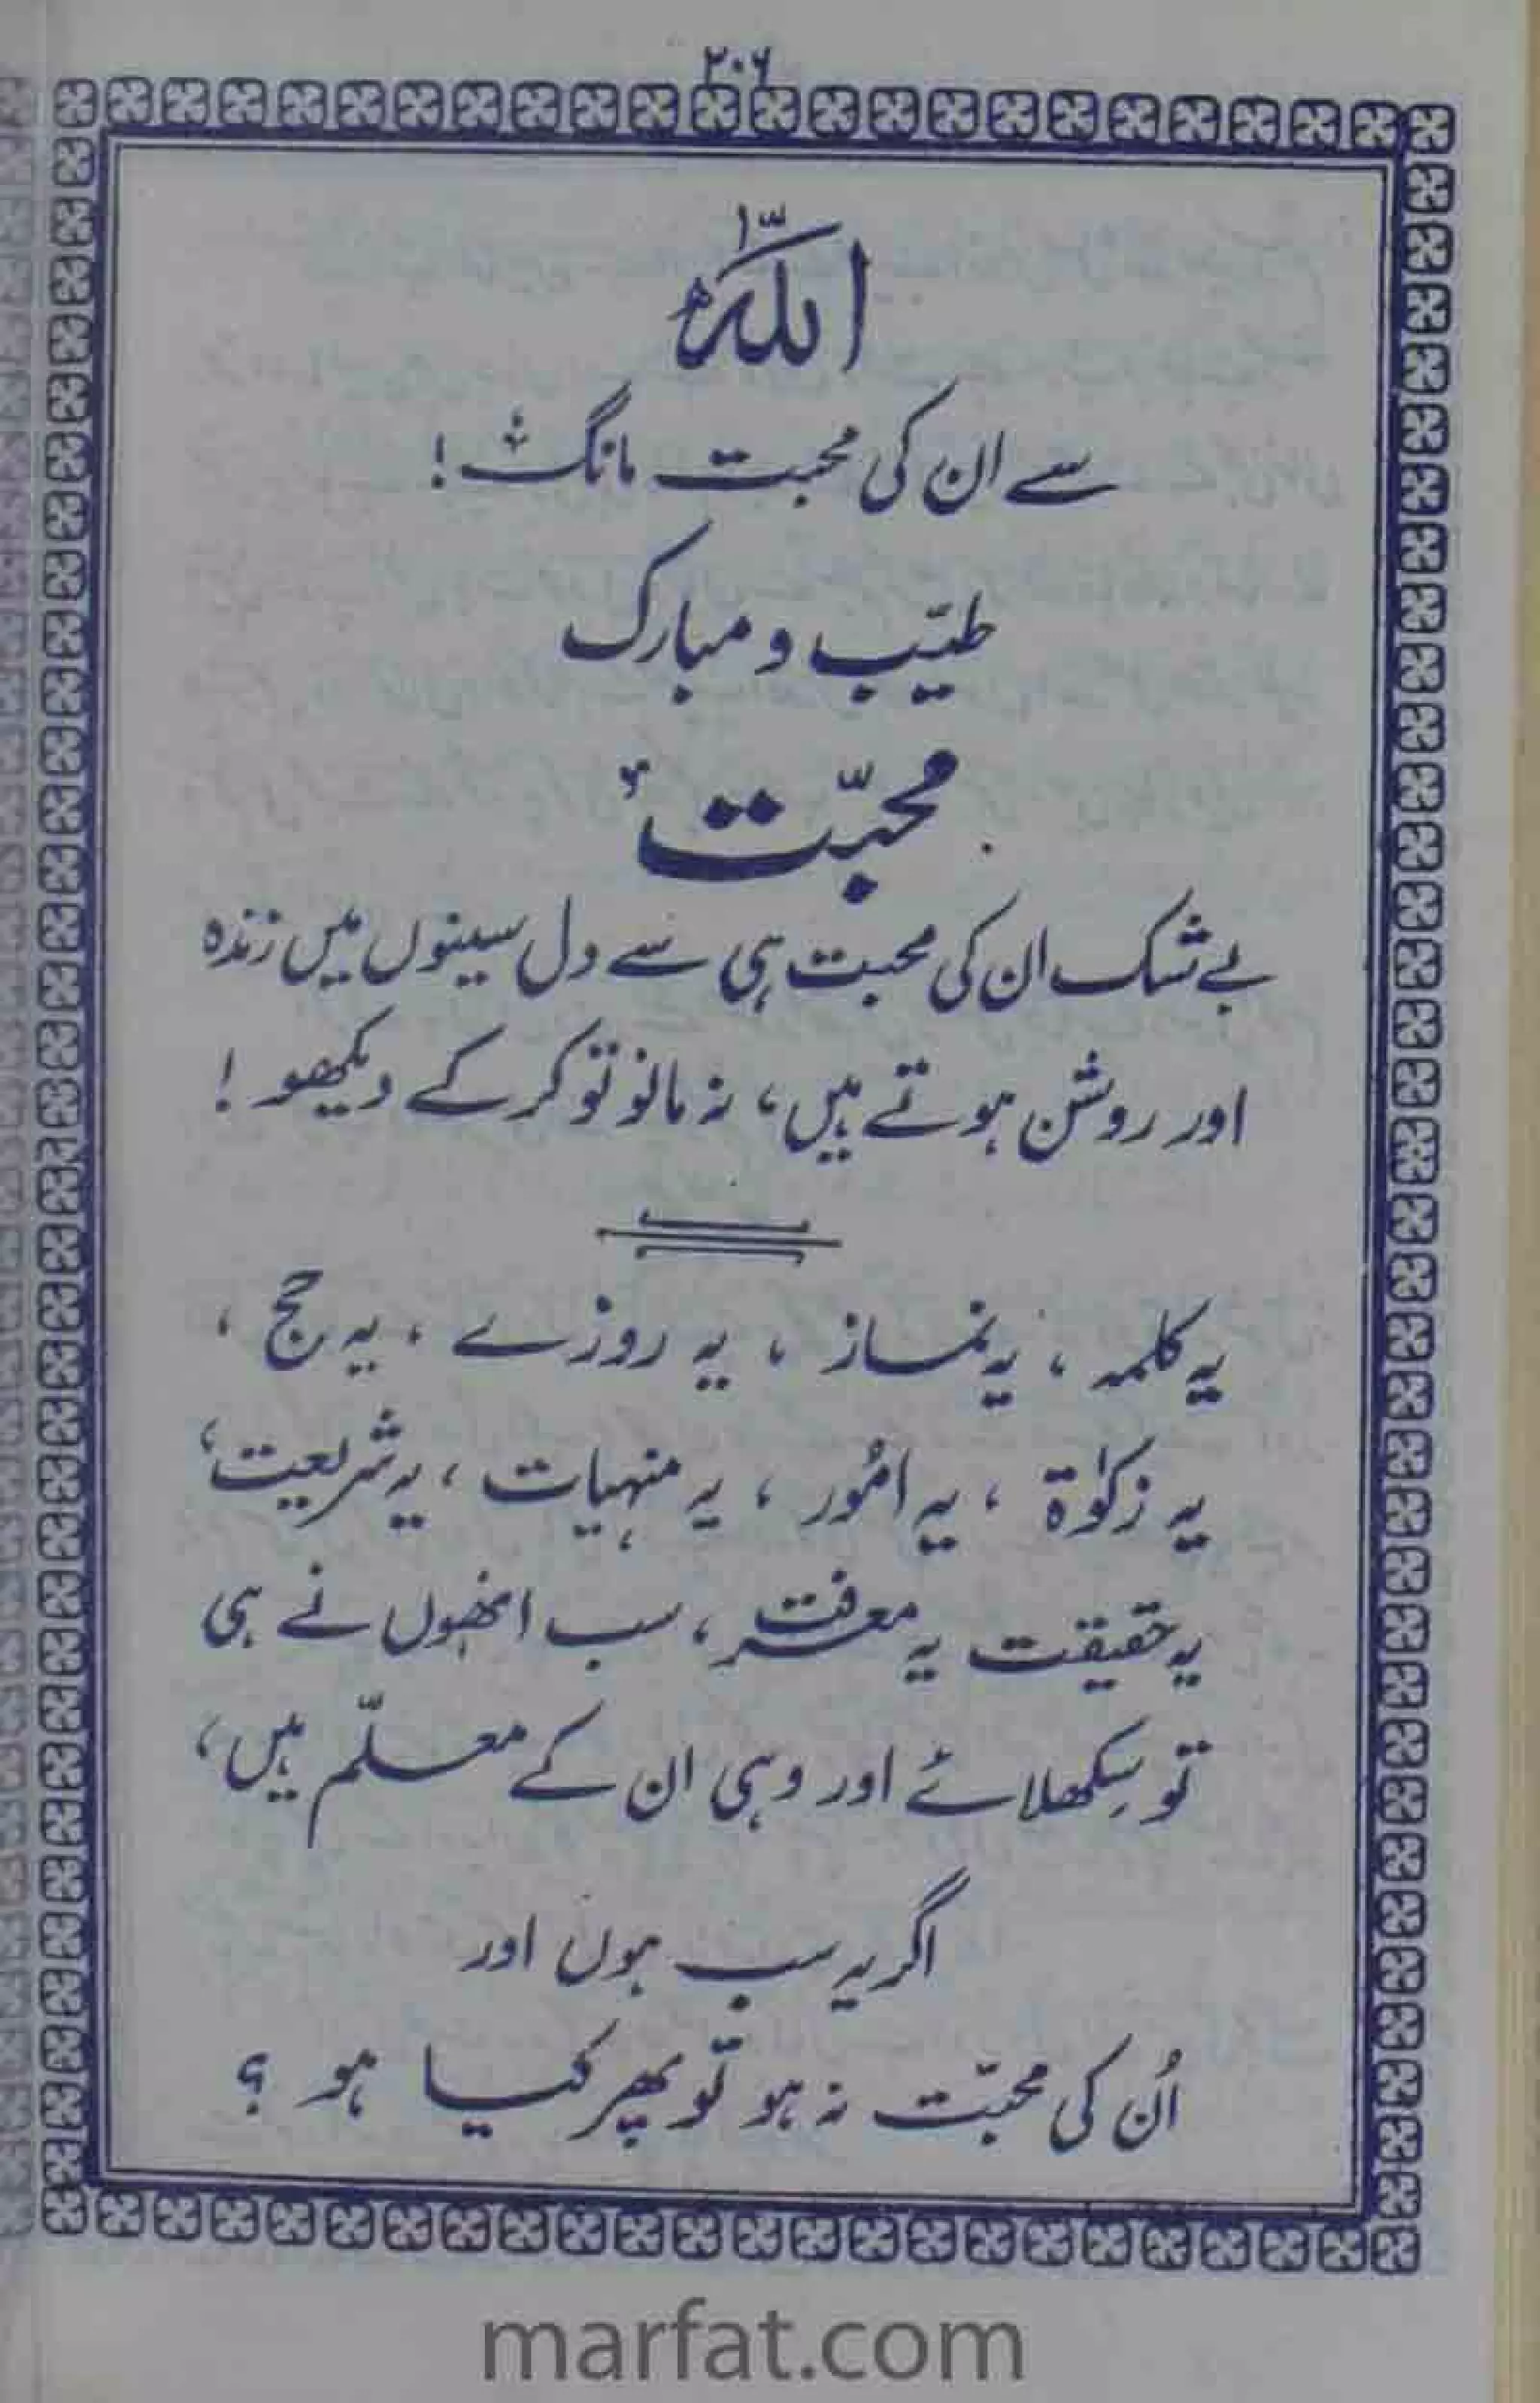 ۲۰۶
اللّٰہ
سے ان کی محبت مانگ !
طیّب و مبارک
محبّت
بے شک ان کی محبت ہی سے دل سینوں میں زندہ
اور روشن ہوتے ہیں، نہ مانو تو کر کے دیکھو !
یہ کلمہ ، یہ نماز ، یہ روزے ، یہ حج ،
یہ زکوٰۃ ، یہ امُور ، یہ منہیات ، یہ شریعت ،
یہ حقیقت یہ معرفت ، سب انھوں نے ہی
تو سِکھلائے اور وہی ان کے معلّم ہیں ،
اگر یہ سب ہوں اور
اُن کی محبّت نہ ہو تو پھر کیا ہو ؟
marfat.com